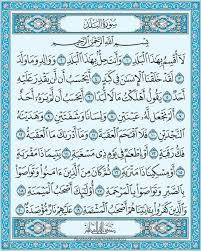 سورة البلد
بسم الله الرحمن الرحيم
لَا أُقْسِمُ بِهَٰذَا الْبَلَدِ ۝ وَأَنتَ حِلٌّ بِهَٰذَا الْبَلَدِ ۝ وَوَالِدٍ وَمَا وَلَدَ
۝ لَقَدْ خَلَقْنَا الْإِنسَانَ فِي كَبَدٍ ۝ أَيَحْسَبُ أَن لَّن يَقْدِرَ عَلَيْهِ
أَحَدٌ ۝ يَقُولُ أَهْلَكْتُ مَالًا لُّبَدًا ۝ أَيَحْسَبُ أَن لَّمْ يَرَهُ أَحَدٌ
۝ أَلَمْ نَجْعَل لَّهُ عَيْنَيْنِ ۝ وَلِسَانًا وَشَفَتَيْنِ ۝ وَهَدَيْنَاهُ
النَّجْدَيْنِ ۝ فَلَا اقْتَحَمَ الْعَقَبَةَ ۝ وَمَا أَدْرَاكَ مَا الْعَقَبَةُ ۝
فَكُّ رَقَبَةٍ ۝ أَوْ إِطْعَامٌ فِي يَوْمٍ ذِي مَسْغَبَةٍ ۝ يَتِيمًا ذَا مَقْرَبَةٍ
۝ أَوْ مِسْكِينًا ذَا مَتْرَبَةٍ ۝ ثُمَّ كَانَ مِنَ الَّذِينَ آمَنُوا وَتَوَاصَوْا
بِالصَّبْرِ وَتَوَاصَوْا بِالْمَرْحَمَةِ ۝ أُولَٰئِكَ أَصْحَابُ الْمَيْمَنَةِ ۝
وَالَّذِينَ كَفَرُوا بِآيَاتِنَا هُمْ أَصْحَابُ الْمَشْأَمَةِ ۝ عَلَيْهِمْ نَارٌ مُّؤْصَدَةٌ ۝